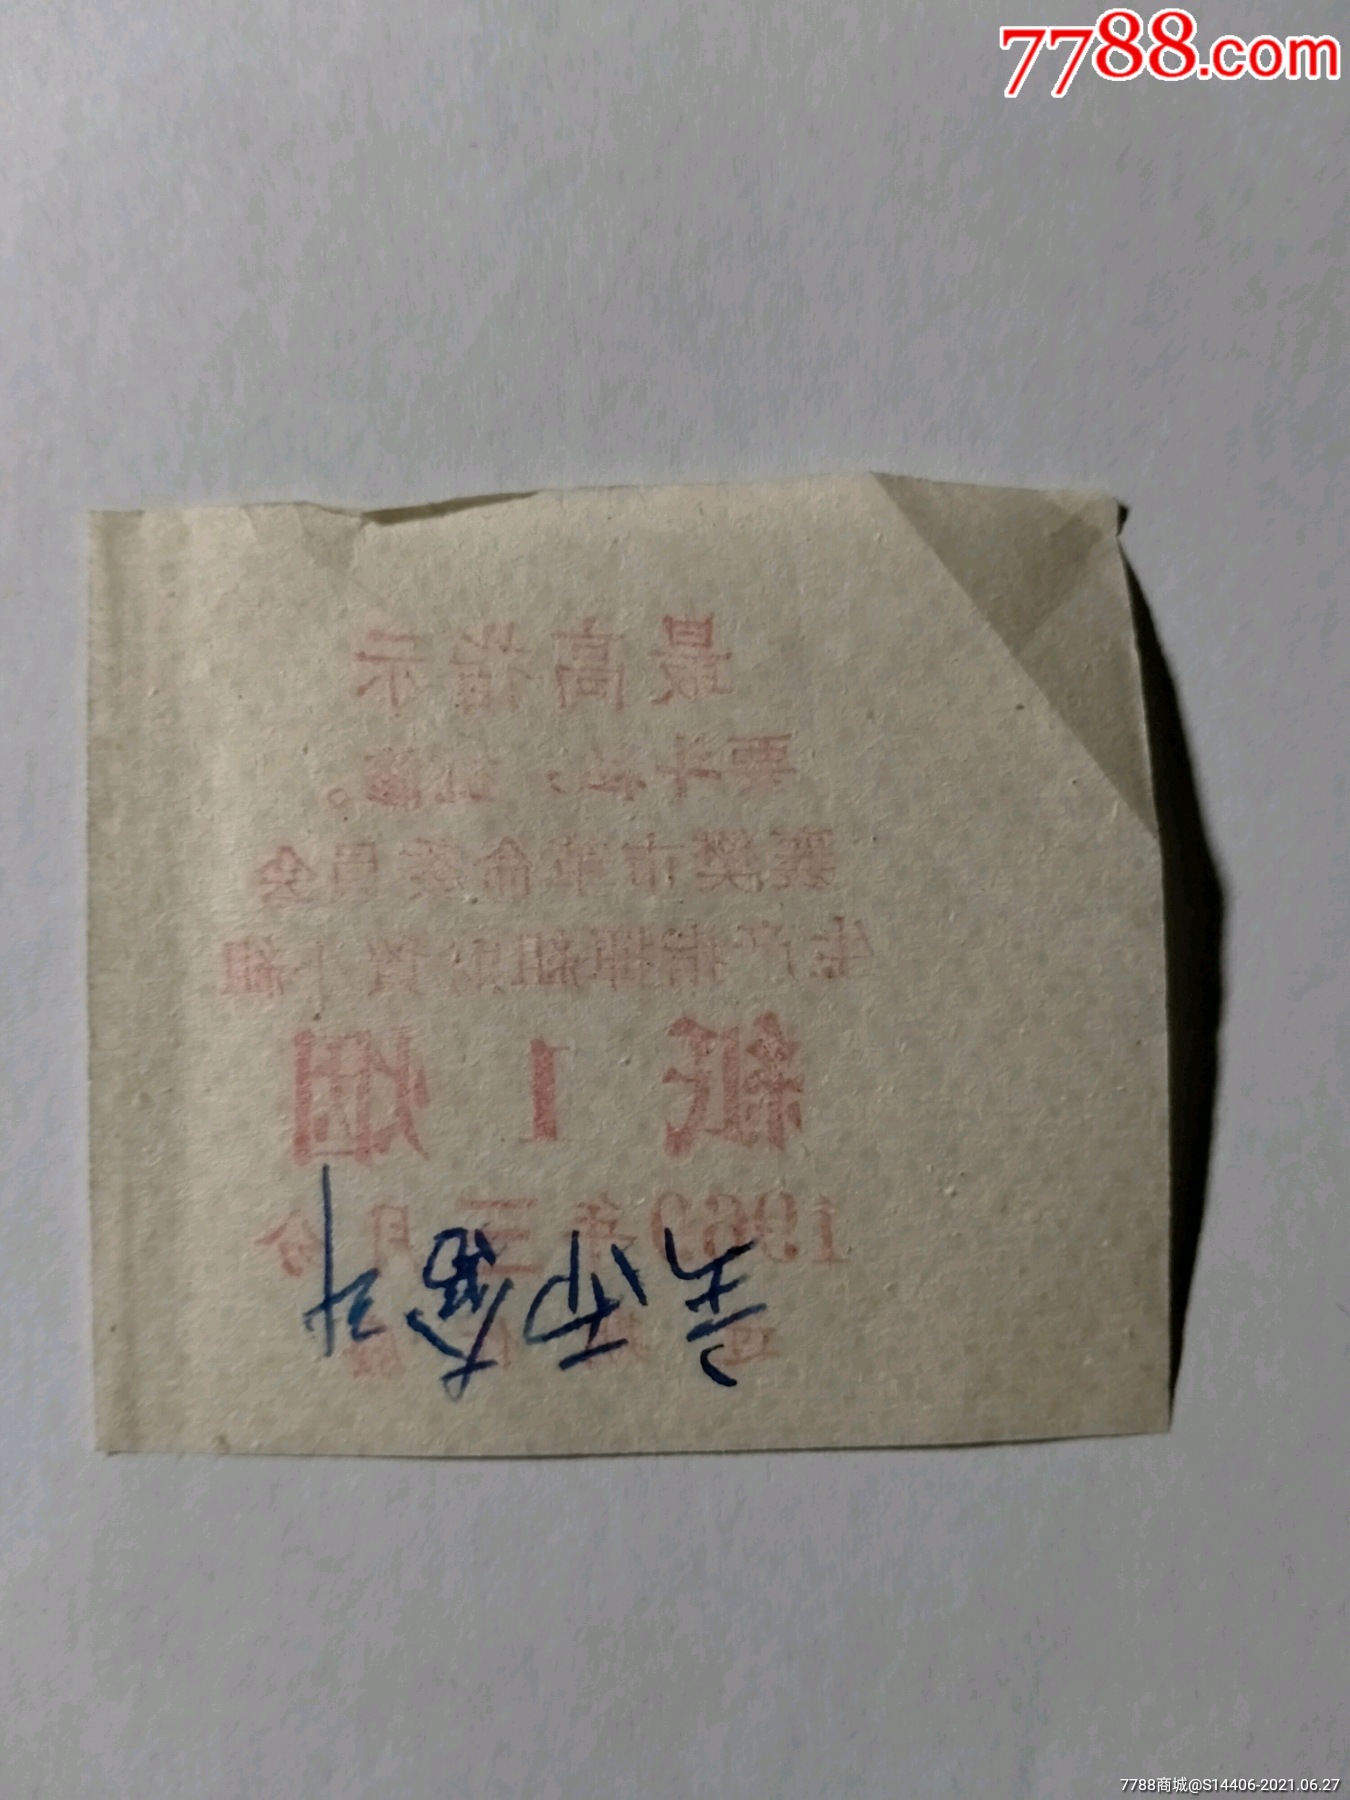 7788.com
最高指示
要斗私,批修。
襄樊市革命委员会
生产指揮組财貿小組
紙1烟
1969年三月份
7788商城@S14406-2021.06.27